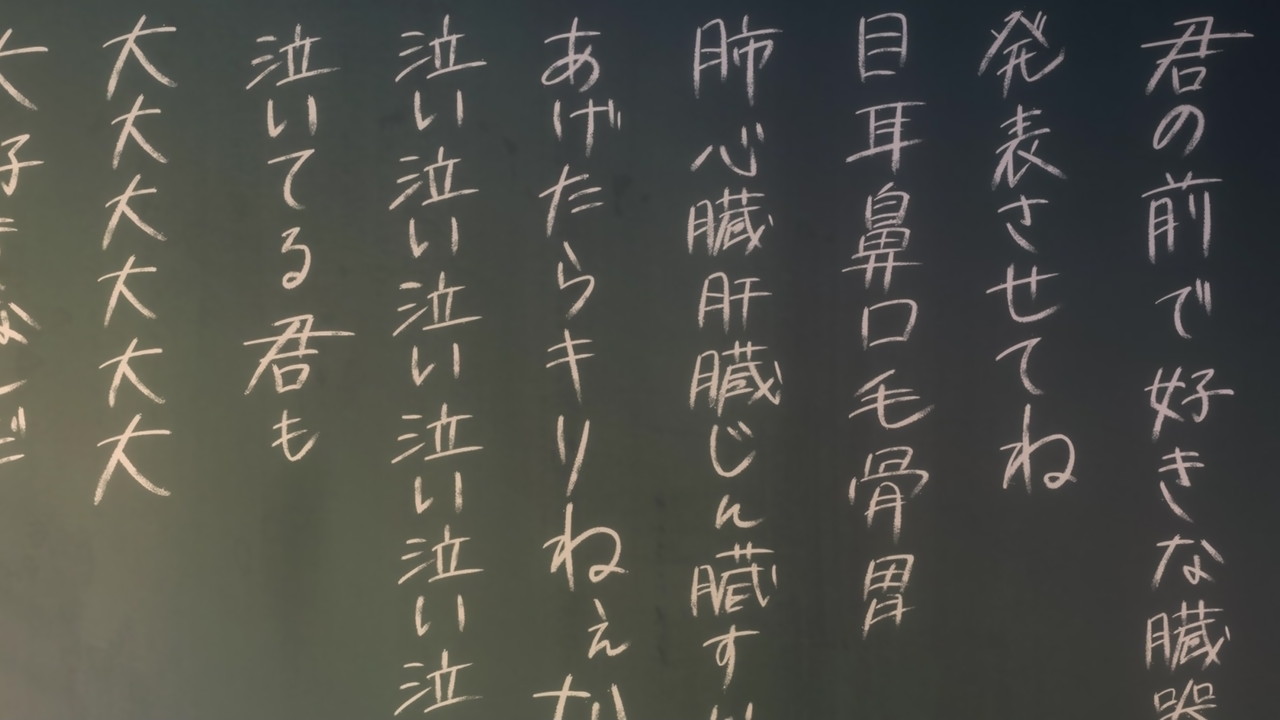 君の前で好きな臓器
発表させてね
目耳鼻口毛骨胃
肺心臓肝臓じん臓す
あげたらキリねぇな
泣い泣い泣い泣い泣い泣
泣いてる君も
大大大大大大